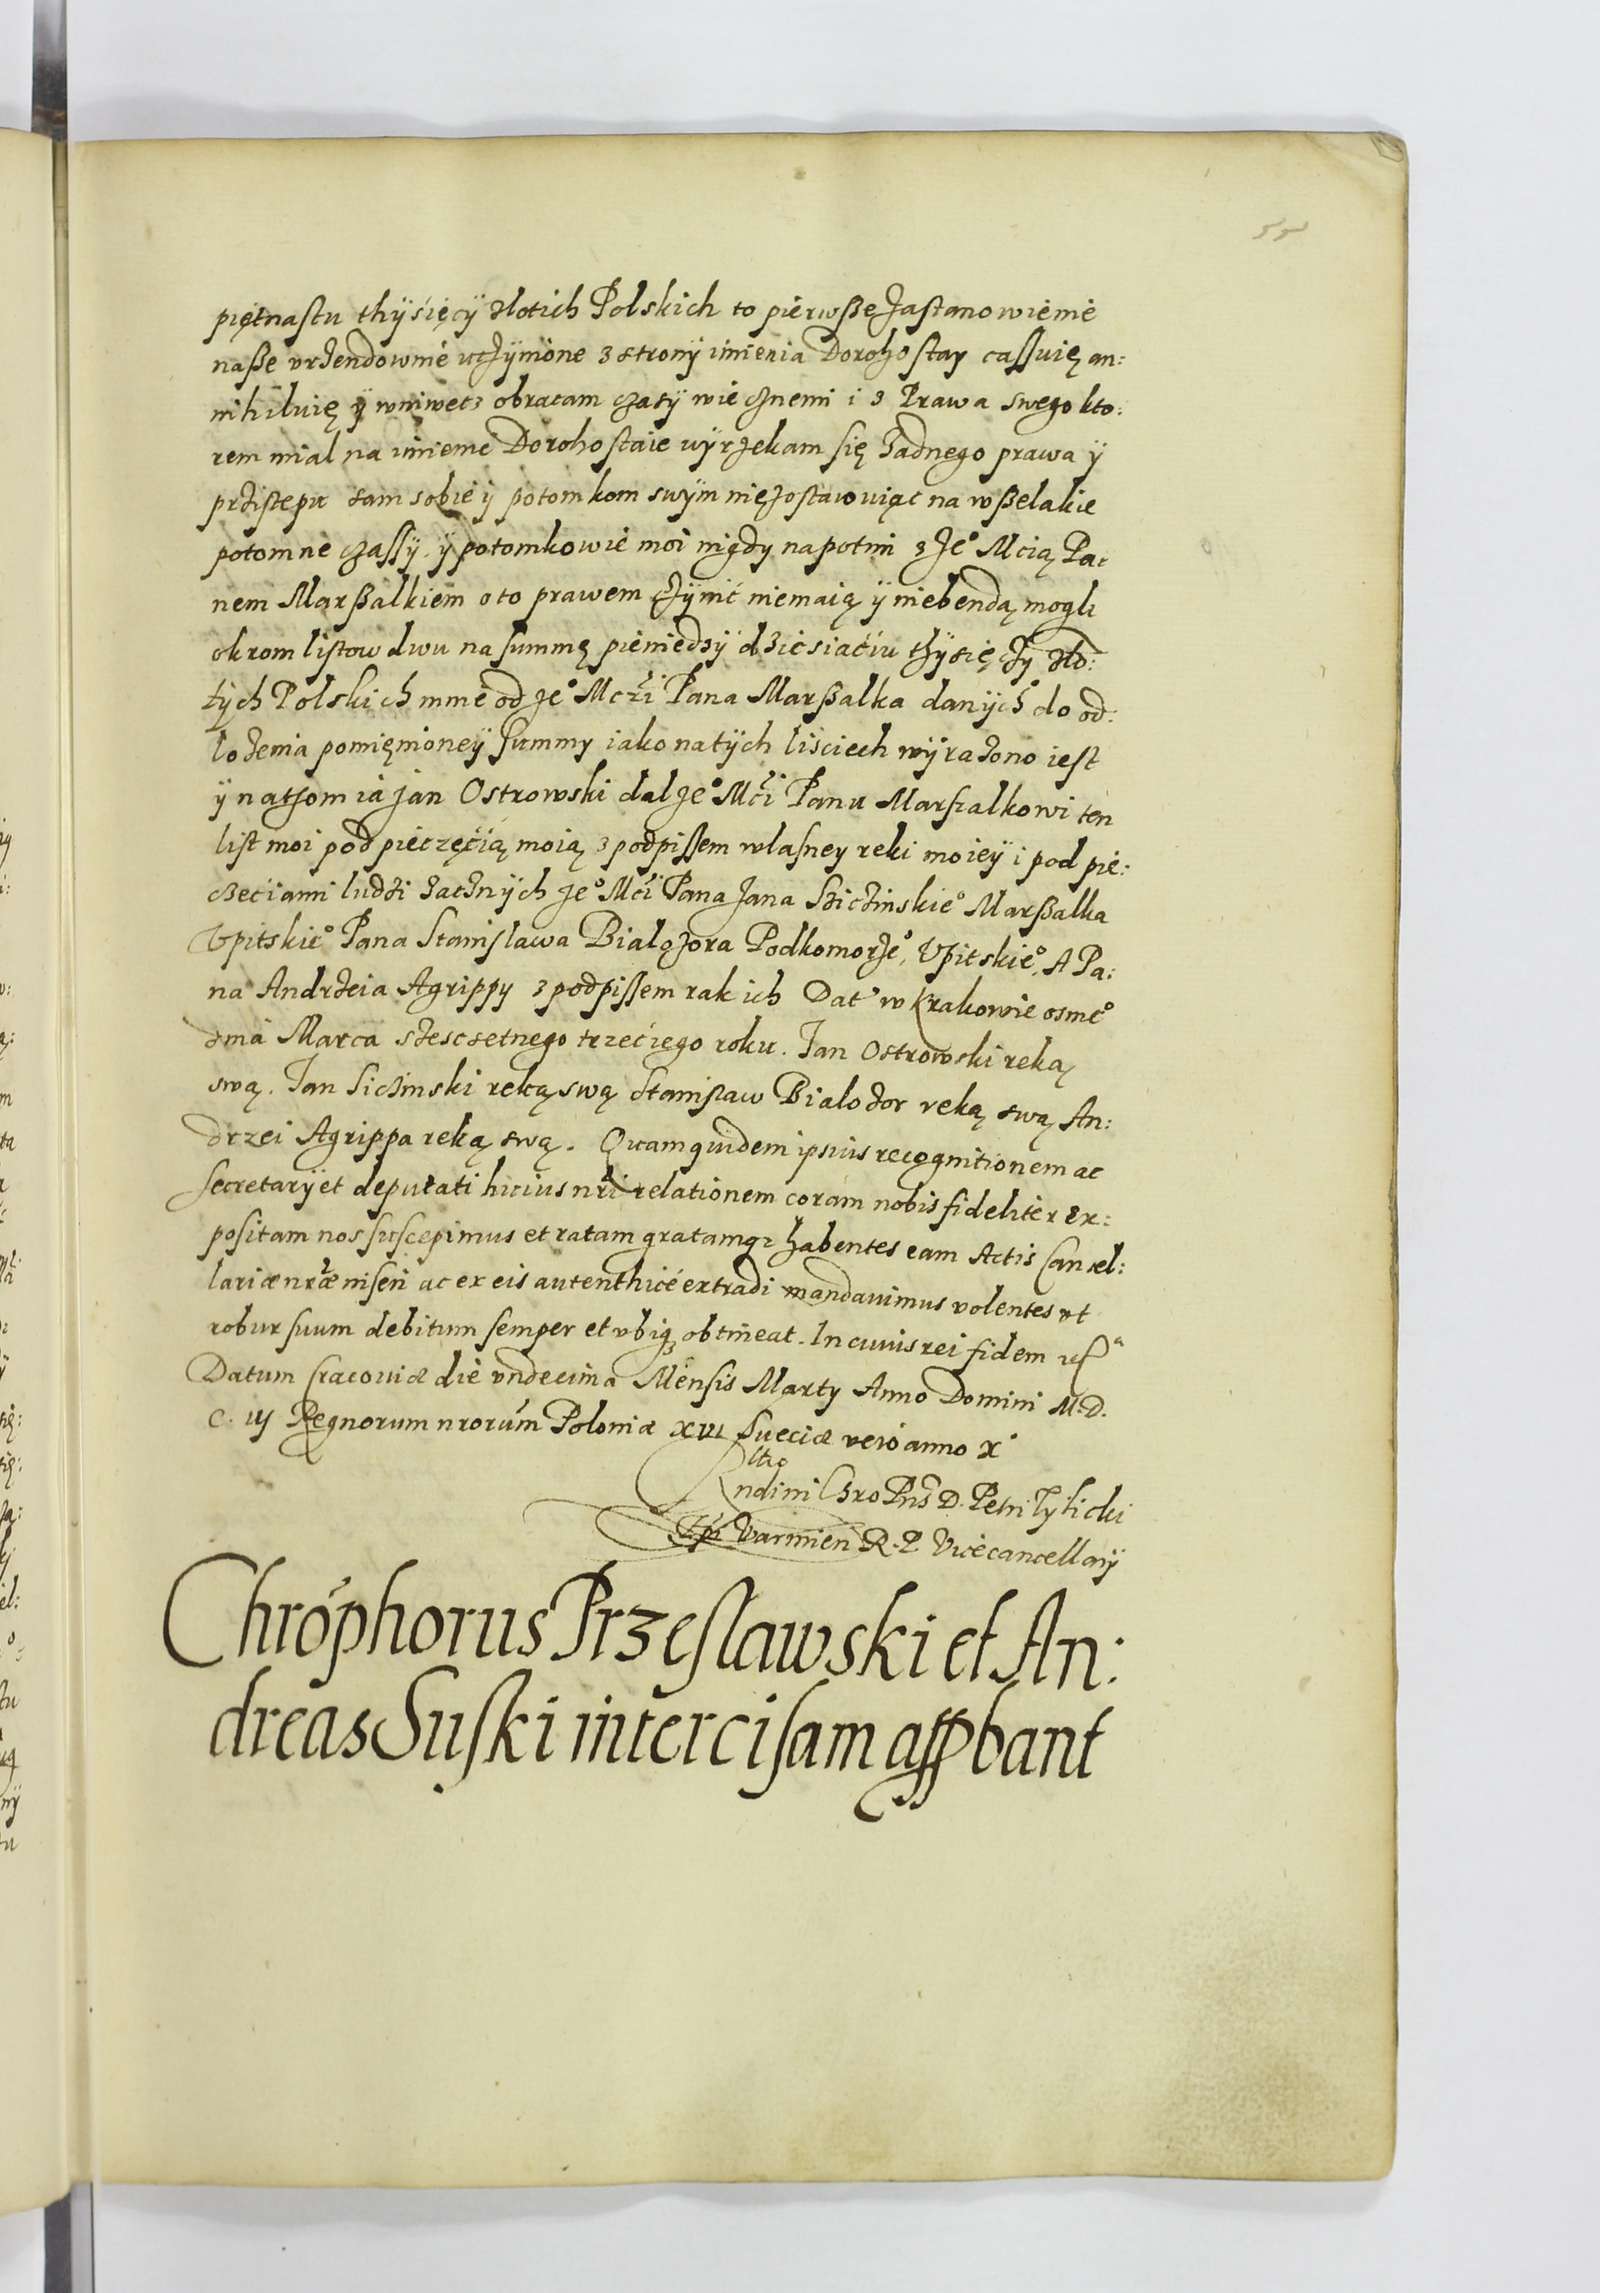 55
piętnastu thÿsięcÿ złotich Polskich to pierwsße zastanowienie
naße vrzendownie uczÿnione z stronÿ imienia Dorohostay cassuię an:
nihiluię ÿ wniwetz obracam czasÿ wiecznemi i z Prawa swego kto:
rem mial na imienie Dorohostaie wÿrzekam się żadnego prawa ÿ
przistepu sam sobie ÿ potomkom swÿm nięzostawuiąc na wßelakie
potomne czassÿ. ÿ potomkowie moi nigdy napotim z Je° Mcią Pa:
nem Marßalkiem o to prawem czÿnić niemaią ÿ niebendą mogli
okrom listow dwu na summę pieniedzÿ dziesiaciu thÿsięczÿ zło:
tÿch Polskich mnie od Je° Mczi Pana Marßalka danÿch do od:
lożenia pomięnioneÿ summy iako natÿch lisciech wÿrażono iest
ÿ natzom ia jan Ostrowski dal Je° Mći Panu Marszalkowi ten
list moi pod pieczęcią moią z podpissem wlasney reki moieÿ i pod pie:
czeciami ludzi zacznÿch Je° Mći Pana Jana Sziczinskie° Marßalka
Vpitskie° Pana Stanislawa Bialozora Podkomorze°, Vpitskie°, A Pa:
na Andrzeia Agrippy z podpissem rak ich Dat' w Krakowie osme°
dnia Marca szescsetnego trzeciego roku. Jan Ostrowski reką
swą. Jan Siczinski reką swą Stanislaw Bialozor reką swą An:
drzei Agrippa reką swą. Quamquidem ipsius recognitionem ac
Secretarÿ et deputati huius nri relationem coram nobis fideliter ex:
positam nos suscepimus et ratam gratamq3 habentes eam Actis Cancel:
lariæ nræ inseri ac ex eis autenthicé extradi mandauimus volentes ut
robur suum debitum semper et vbiq3 obtineat. In cuius rei fidem
Datum Cracouiæ die vndecima Mensis Marty Anno Domini M.D.
C. iij Regnorum nrorum Poloniæ xvi Sueciæ vero anno x°
Rndini Petri Tylicki
Varmien R.P. Vicecancellarÿ
Chrophorus Przeslawski et An:
dreas Suski intercisam appbant